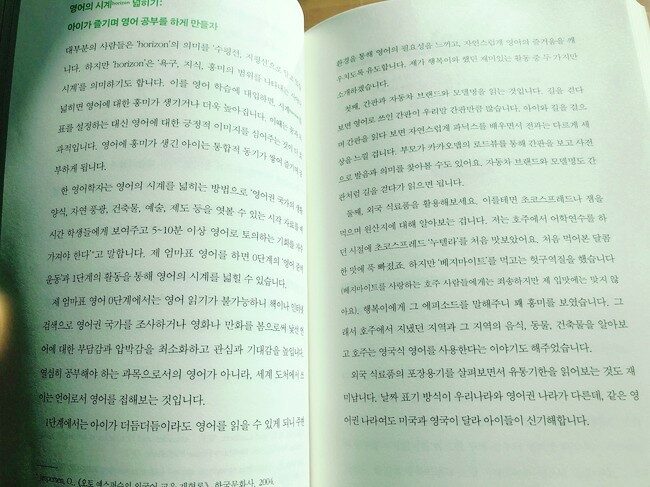 영어의 시계horizon 넓히기:
아이가 즐기며 영어 공부를 하게 만들자
대부분의 사람들은 'horizon'의 의미를 '수평선, 지평선'으로
니다. 하지만 'horizon'은 '욕구, 지식, 흥미의 범위를 나타내는
시계'를 의미하기도 합니다. 이를 영어 학습에 대입하면, 시계를
넓히면 영어에 대한 흥미가 생기거나 더욱 높아집니다. 이때는
표를 설정하는 대신 영어에 대한 긍정적 이미지를 심어주는 것이 더
과적입니다. 영어에 흥미가 생긴 아이는 통합적 동기가 쌓여 즐기며 공
부하게 됩니다.
한 영어학자는 영어의 시계를 넓히는 방법으로 '영어권 국가의 생활
양식, 자연 풍광, 건축물, 예술, 제도 등을 엿볼 수 있는 시각 자료를 매
시간 학생들에게 보여주고 5~10분 이상 영어로 토의하는 기회를
가져야 한다'고 말합니다. 제 엄마표 영어로 하면 0단계의 '영어 준비
운동'과 1단계의 활동을 통해 영어의 시계를 넓힐 수 있습니다.
제 엄마표 영어 0단계에서는 영어 읽기가 불가능하니 책이나 인터넷
검색으로 영어권 국가를 조사하거나 영화나 만화를 봄으로써 낯선 언
어에 대한 부담감과 압박감을 최소화하고 관심과 기대감을 높입니다.
열심히 공부해야 하는 과목으로서의 영어가 아니라, 세계 도처에서 쓰
이는 언어로서 영어를 접해보는 것입니다.
1단계에서는 아이가 더듬더듬이라도 영어를 읽을 수 있게 되니 주변
O, 《오토 예스퍼슨의 외국어 교육 개혁론》, 한국문화사, 2004.
환경을 통해 영어의 필요성을 느끼고, 자연스럽게 영어의 즐거움을 깨
우치도록 유도합니다. 제가 행복이와 했던 재미있는 활동 중 두 가지만
소개하겠습니다.
첫째, 간판과 자동차 브랜드와 모델명을 읽는 것입니다. 길을 걷다
보면 영어로 쓰인 간판이 우리말 간판만큼 많습니다. 아이와 길을 걸으
며 간판을 읽다 보면 자연스럽게 파닉스를 배우면서 전과는 다르게 세
상을 느낄 겁니다. 부모가 카카오맵의 로드뷰를 통해 간판을 보고 사전
으로 발음과 의미를 찾아볼 수도 있어요. 자동차 브랜드와 모델명도 간
판처럼 길을 걷다가 읽으면 됩니다.
둘째, 외국 식료품을 활용해보세요. 이를테면 초코스프레드나 잼을
먹으며 원산지에 대해 알아보는 겁니다. 저는 호주에서 어학연수를 하
던 시절에 초코스프레드 '누텔라'를 처음 맛보았어요. 처음 먹어본 달콤
한 맛에 푹 빠졌죠. 하지만 '베지마이트'를 먹고는 헛구역질을 했습니다
(베지마이트를 사랑하는 호주 사람들에게는 죄송하지만 제 입맛에는 맞지 않
아요). 행복이에게 그 에피소드를 말해주니 꽤 흥미를 보였습니다. 그
래서 호주에서 지냈던 지역과 그 지역의 음식, 동물, 건축물을 알아보
고 호주는 영국식 영어를 사용한다는 이야기도 해주었습니다.
외국 식료품의 포장용기를 살펴보면서 유통기한을 읽어보는 것도 재
미납니다. 날짜 표기 방식이 우리나라와 영어권 나라가 다른데, 같은 영
어권 나라여도 미국과 영국이 달라 아이들이 신기해합니다.